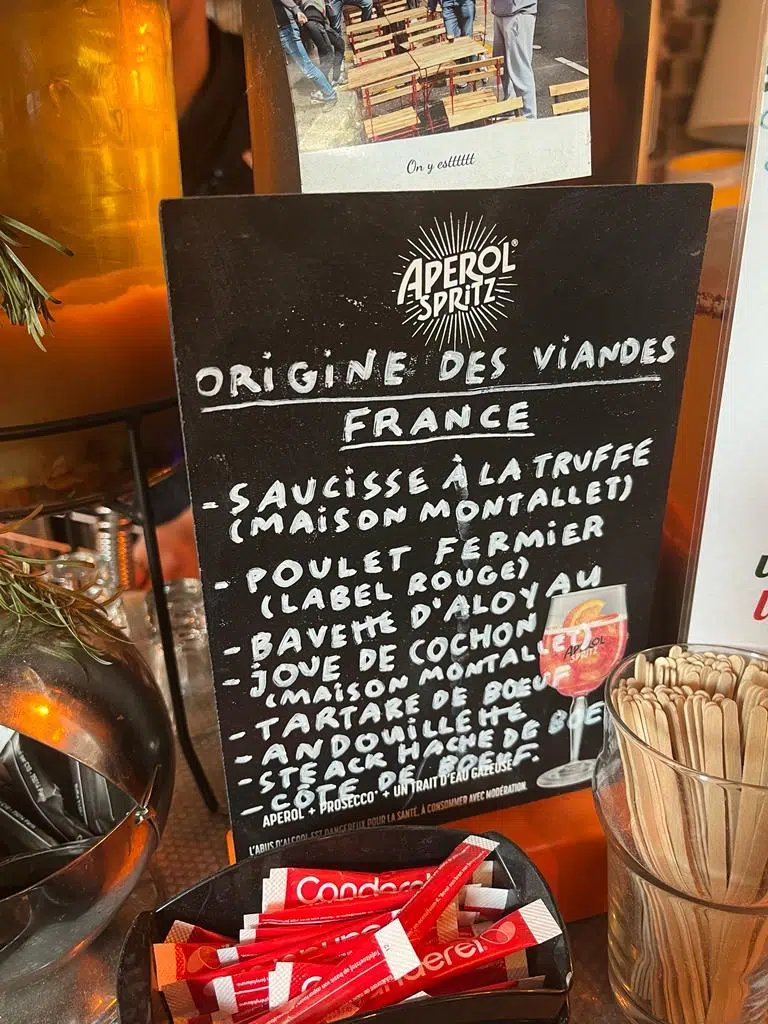 On y estttttt
APEROL®
SPRITZ
ORIGINE DES VIANDES
FRANCE
- SAUCISSE À LA TRUFFE
(MAISON MONTALLET)
- POULET FERMIER
(LABEL ROUGE)
- BAVETTE D'ALOYAU
- JOUE DE COCHON
(MAISON MONTALLET)
- TARTARE DE BOEUF
- ANDOUILLETTE
- STEACK HACHE DE BOE
- CÔTE DE BOEUF.
APEROL
SPRITZ
APEROL + PROSECCO + UN TRAIT D'EAU GAZEUSE
L'ABUS D'ALCOOL EST DANGEREUX POUR LA SANTÉ, À CONSOMMER AVEC MODÉRATION.
Canderel
anderel